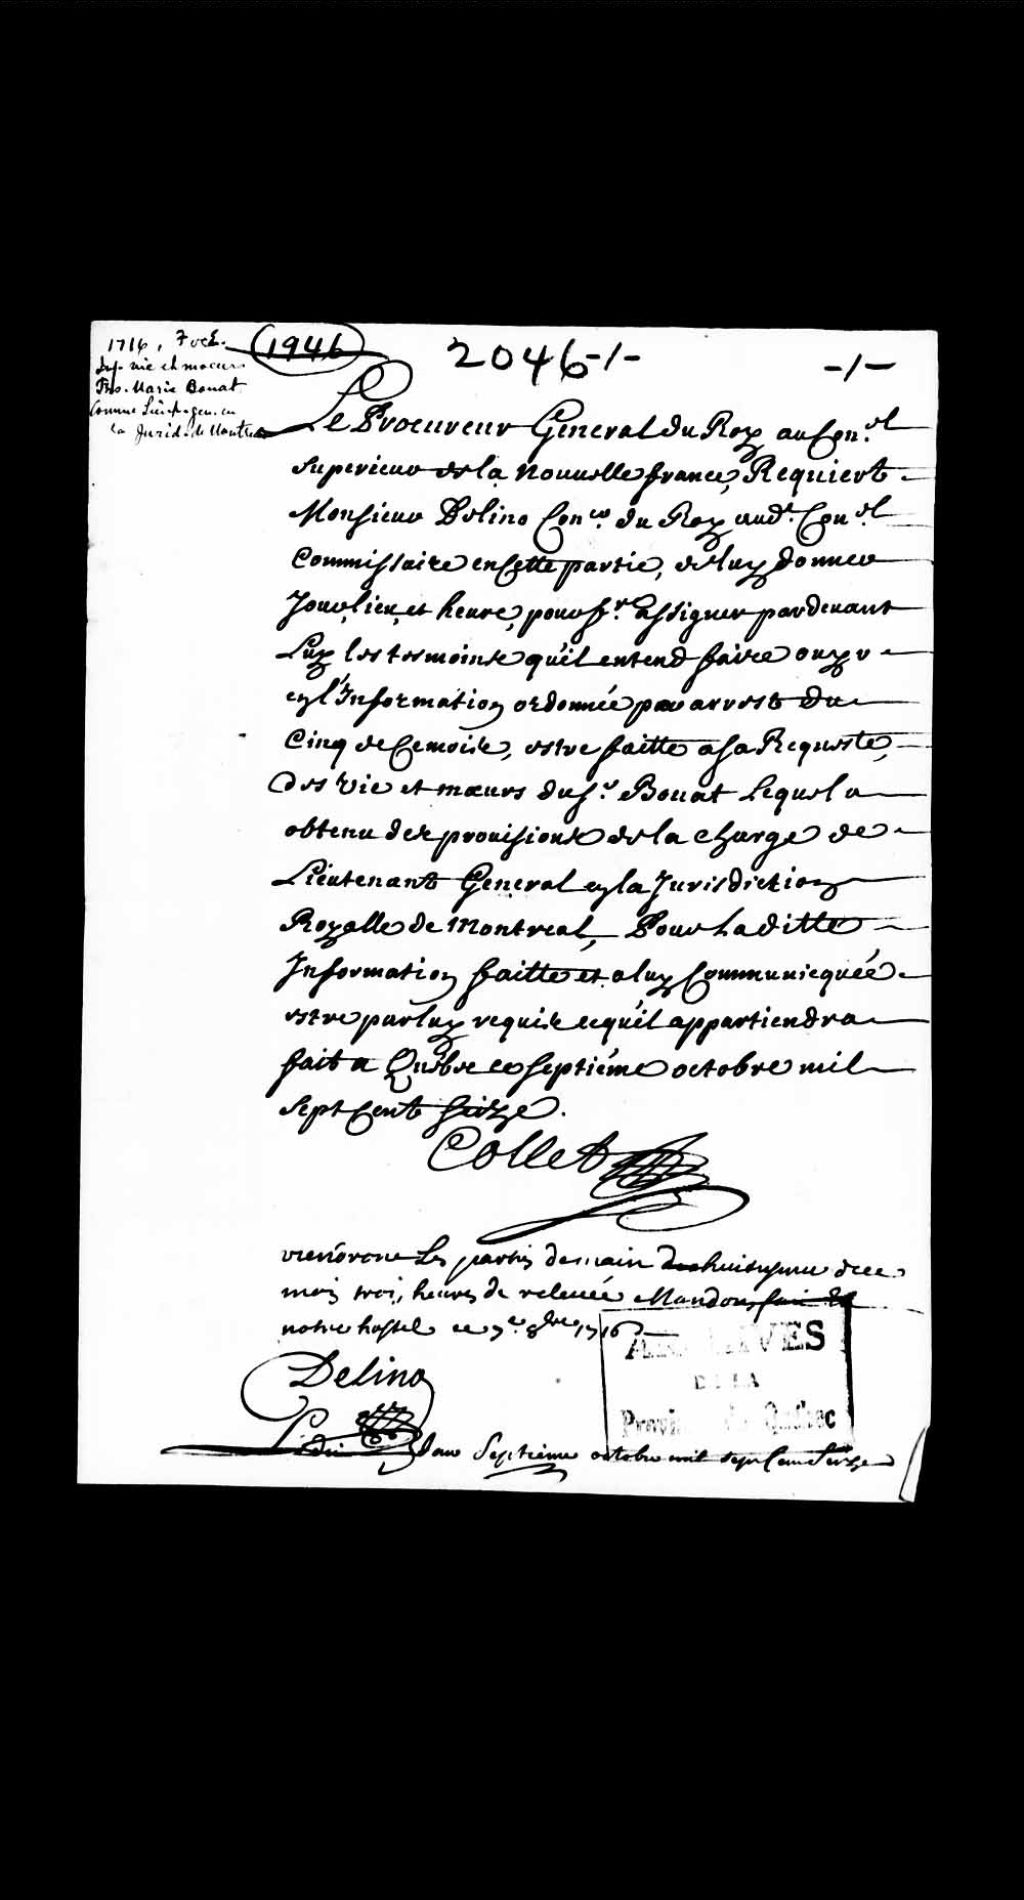 1716, 7 oct.
1946
2046-/-
-/-
Inf. vie et moeurs
Frs. Marie Bouat
Comme Lieut. gen. en
la Jurid. de Montreal
Le Procureur General du Roy au Con.el
superieur de la nouuelle france, Requiert
Monsieur Delino Con.er du Roy aud.t Con.el
Commissaire en Cette partie, de luy donner
Jour, lieu, et heure, pour f.re assigner pardeuant
Luy les tesmoins qu'il entend faire ouyr
en l'Information ordonnée par arrest du
Cinq de Ce mois, estre faitte a sa Requeste,
des vie et mœurs du s.r Bouat Lequel a
obtenu des prouisions de la charge de
Lieutenant General en la Jurisdiction
Royalle de Montreal, Pour Laditte
Information faitte et a luy Communicquée
estre par luy requis ce qu'il appartiendra
fait a Quebec ce septiéme octobre mil
sept Cent seize.
Collet
viendront Les partis demain huitiesme de ce
mois trois heures de releueé Mandons fait en
nostre hostel ce 7.e 8bre 1716
ARCHIVES
DE LA
Province de Québec
Delino
dud. Jour Septieme octobre mil sept Cent Seize